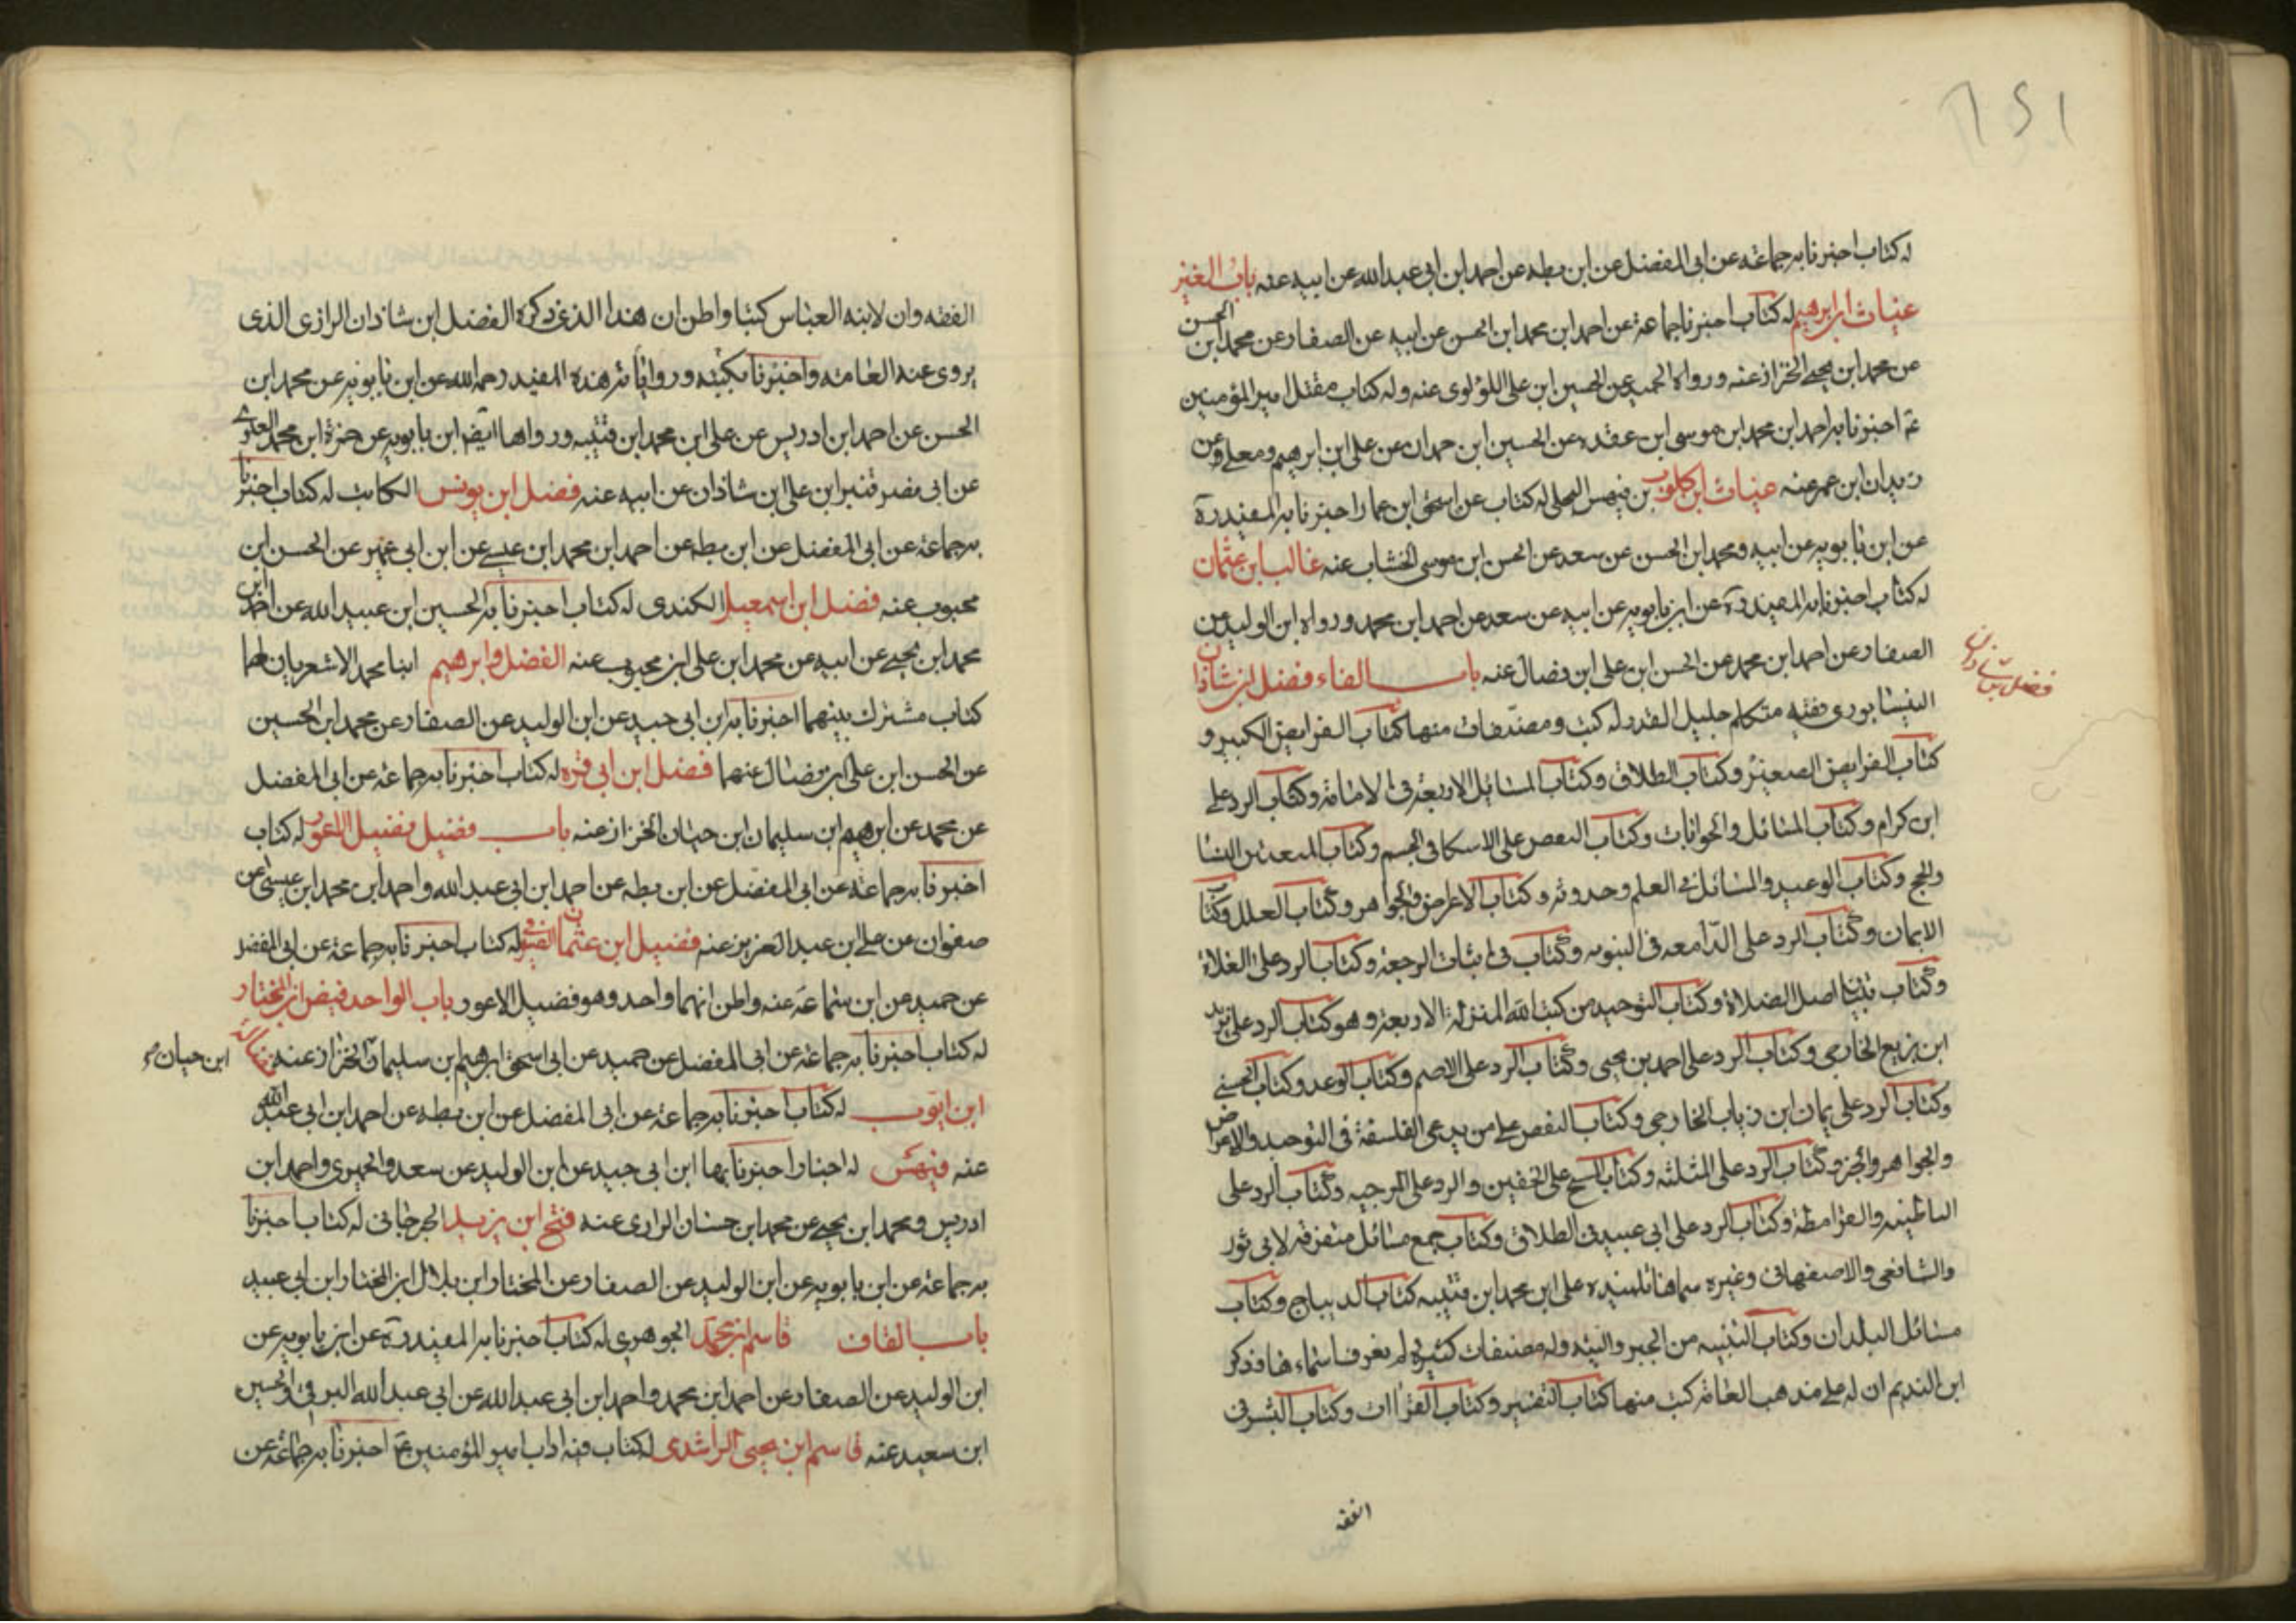 له كتاب اخبرنا به جماعة عن ابى المفضل عن ابن بطه عن احمد ابن ابى عبد الله عن ابيه عنه باب الغين
غياث ابن ابرهيم له كتاب اخبرنا جماعة عن احمد ابن محمد ابن الحسن عن ابيه عن الصفار عن محمد ابن الحسن
عن محمد ابن يحيى الخزاز عنه ورواه الحميد عن الحسين ابن على اللؤلوى عنه وله كتاب مقتل امير المؤمنين
ع اخبرنا به احمد ابن محمد ابن موسى ابن عقده عن الحسين ابن حمدان عن على ابن ابرهيم ومعلى عن
زيدان ابن عمر عنه غياث ابن كلوب بن فيهس البجلى له كتاب عن اسحق ابن عمار اخبرنا به المفيد ره
عن ابن بابويه عن ابيه ومحمد ابن الحسن عن سعد عن الحسن ابن موسى الخشاب عنه غالب ابن عثمان
له كتاب اخبرنا به المفيد ره عن ابن بابويه عن ابيه عن سعد عن احمد ابن محمد ورواه ابن الوليد عن
الصفار عن احمد ابن محمد عن الحسن ابن على ابن فضال عنه باب الفاء فضل ابن شاذان
فضل بن شاذان
النيشابورى فقيه متكلم جليل القدر له كتب ومصنفات منها كتاب الفرايض الكبير و
كتاب الفرايض الصغير وكتاب الطلاق وكتاب المسايل الاربعة فى الامامة وكتاب الرد على
ابن كرام وكتاب المسائل والجوابات وكتاب النقض على الاسكافى الجسم وكتاب
والحج وكتاب الوعيد والمسائل فى العلم وحدوثه وكتاب الاعراض والجواهر وكتاب العلل وكتاب
الايمان وكتاب الرد على الدامعه فى النبوه وكتاب فى اثبات الرجعة وكتاب الرد على الغلاة
وكتاب تبيان اصل الضلالة وكتاب التوحيد من كتب الله المنزلة الاربعة وهو كتاب الرد على يزيد
ابن بزيع الخارجى وكتاب الرد على احمد بن يحيى وكتاب الرد على الاصم وكتاب الوعد وكتاب الحسنى
وكتاب الرد على يمان ابن رباب الخارجى وكتاب النقض على من يدعى الفلسفة فى التوحيد والاعراض
والجواهر والجز وكتاب الرد على المثلثه وكتاب المسح على الخفين والرد على المرجيه وكتاب الرد على
الباطنيه والقرامطة وكتاب الرد على ابى عبيد فى الطلاق وكتاب جمع مسائل متفرقه لابى ثور
والشافعى والاصفهانى وغيره سماها تلميذه على ابن محمد ابن قتيبه كتاب الديباج وكتاب
مسائل البلدان وكتاب التنبيه من الجبر وله مصنفات كثيره لم يعرف اسماءها وذكر
ابن النديم ان له على مذهب العامة كتب منها كتاب التفسير وكتاب القراات وكتاب السنن فى
الفقه
الفقه وان لابنه العباس كتبا واظن ان هذا الذى ذكره الفضل ابن شاذان الرازى الذى
يروى عنه العامة واخبرنا بكتبه ورواياته هذه المفيد رحمه الله عن ابن بابويه عن محمد ابن
الحسن عن احمد ابن ادريس عن على ابن محمد ابن قتيبه ورواها ايضا ابن بابويه عن حمزة ابن محمد العلوى
عن ابى نصر قنبر ابن على ابن شاذان عن ابيه عنه فضل ابن يونس الكاتب له كتاب اخبرنا
به جماعة عن ابى المفضل عن ابن بطه عن احمد ابن محمد ابن عيسى عن ابن ابى عمير عن الحسن ابن
محبوب عنه فضل ابن اسمعيل الكندى له كتاب اخبرنا به الحسين ابن عبيد الله عن احمد ابن
محمد ابن يحيى عن ابيه عن محمد ابن على ابن محبوب عنه الفضل وابرهيم ابنا محمد الاشعريان لهما
كتاب مشترك بينهما اخبرنا به ابن ابى جيد عن ابن الوليد عن الصفار عن محمد ابن الحسين
عن الحسن ابن على ابن فضال عنهما فضل ابن ابى قره له كتاب اخبرنا به جماعة عن ابى المفضل
عن محمد عن ابرهيم ابن سليمان ابن حيان الخزاز عنه باب فضيل فضيل الاعور له كتاب
اخبرنا به جماعة عن ابى المفضل عن ابن بطه عن احمد ابن ابى عبد الله واحمد ابن محمد ابن عيسى عن
صفوان عن على ابن عبد العزيز عنه فضيل ابن عثمان الصيرفى له كتاب اخبرنا به جماعة عن ابى المفضل
عن حميد عن ابن سماعة عنه واظن انهما واحد وهو فضيل الاعور باب الواحد فيض ابن المختار
له كتاب اخبرنا به جماعة عن ابى المفضل عن حميد عن ابى اسحق ابرهيم ابن سليمان الخزاز عنه فضالة
ابن حيان
ابن ايوب له كتاب اخبرنا به جماعة عن ابى المفضل عن ابن بطه عن احمد ابن ابى عبد الله
عنه فيهس له اخبار اخبرنا بها ابن ابى جيد عن ابن الوليد عن سعد والحميرى واحمد ابن
ادريس ومحمد ابن يحيى عن محمد ابن حسان الرازى عنه فتح ابن يزيد الجرجانى له كتاب اخبرنا
به جماعة عن ابن بابويه عن ابن الوليد عن الصفار عن المختار ابن بلال ابن المختار ابن ابى عبيد
باب القاف قاسم ابن محمد الجوهرى له كتاب اخبرنا به المفيد ره عن ابن بابويه عن
ابن الوليد عن الصفار عن احمد ابن محمد واحمد ابن ابى عبد الله عن ابى عبد الله البرقى والحسين
ابن سعيد عنه قاسم ابن يحيى الراشدى له كتاب فيه اداب امير المؤمنين ع اخبرنا به جماعة عن